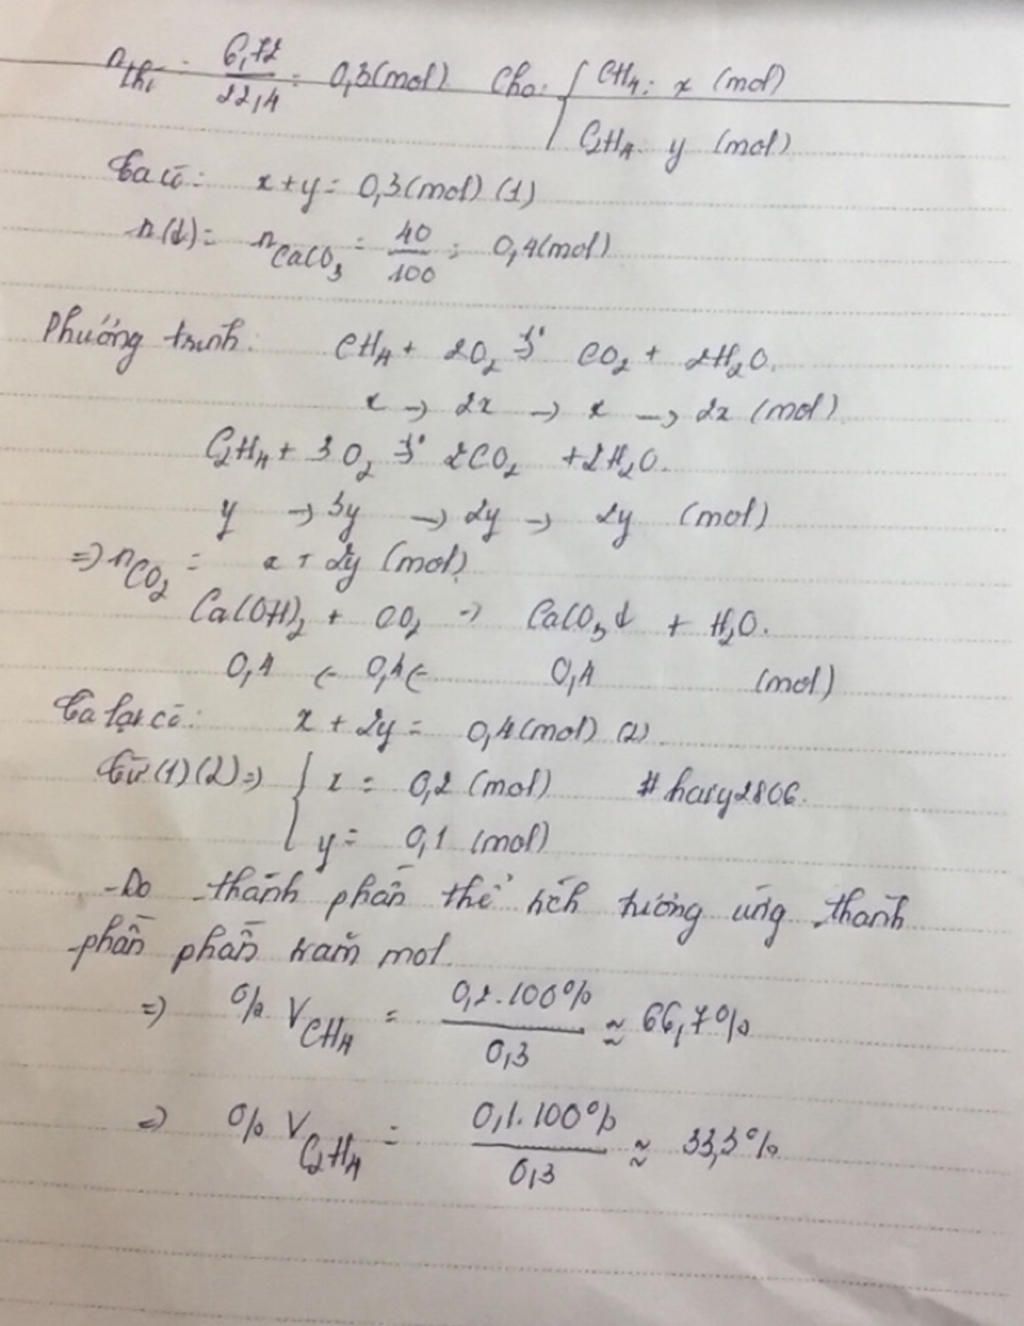 n khí = 6,72 / 22,4 = 0,3(mol) Cho: { CH4: x (mol)
C2H4: y (mol)
Ta có: x+y = 0,3(mol) (1)
n(↓) = nCaCO3 = 40 / 100 = 0,4(mol)
Phương trình: CH4 + 2O2 t°→ CO2 + 2H2O.
x → 2x → x → 2x (mol)
C2H4 + 3O2 t°→ 2CO2 + 2H2O.
y → 3y → 2y → 2y (mol)
=> nCO2 = x + 2y (mol)
Ca(OH)2 + CO2 → CaCO3↓ + H2O.
0,4 ← 0,4 ← 0,4 (mol)
Ta lại có: x + 2y = 0,4(mol) (2)
Từ (1)(2) => { x = 0,2 (mol) #hary2806.
y = 0,1 (mol)
-Do thành phần thể tích tương ứng thành
phần phần trăm mol.
=> % VCH4 = 0,2.100% / 0,3 ≈ 66,7%
=> % VC2H4 = 0,1.100% / 0,3 ≈ 33,3%